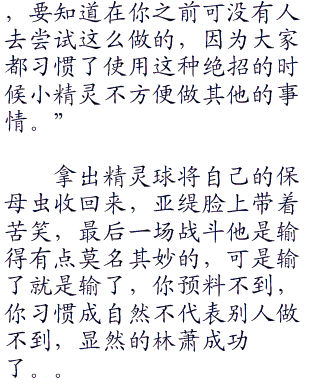 ，要知道在你之前可没有人
去尝试这么做的，因为大家
都习惯了使用这种绝招的时
候小精灵不方便做其他的事
情。”
拿出精灵球将自己的保
母虫收回来，亚缇脸上带着
苦笑，最后一场战斗他是输
得有点莫名其妙的，可是输
了就是输了，你预料不到，
你习惯成自然不代表别人做
不到，显然的林萧成功
了。。